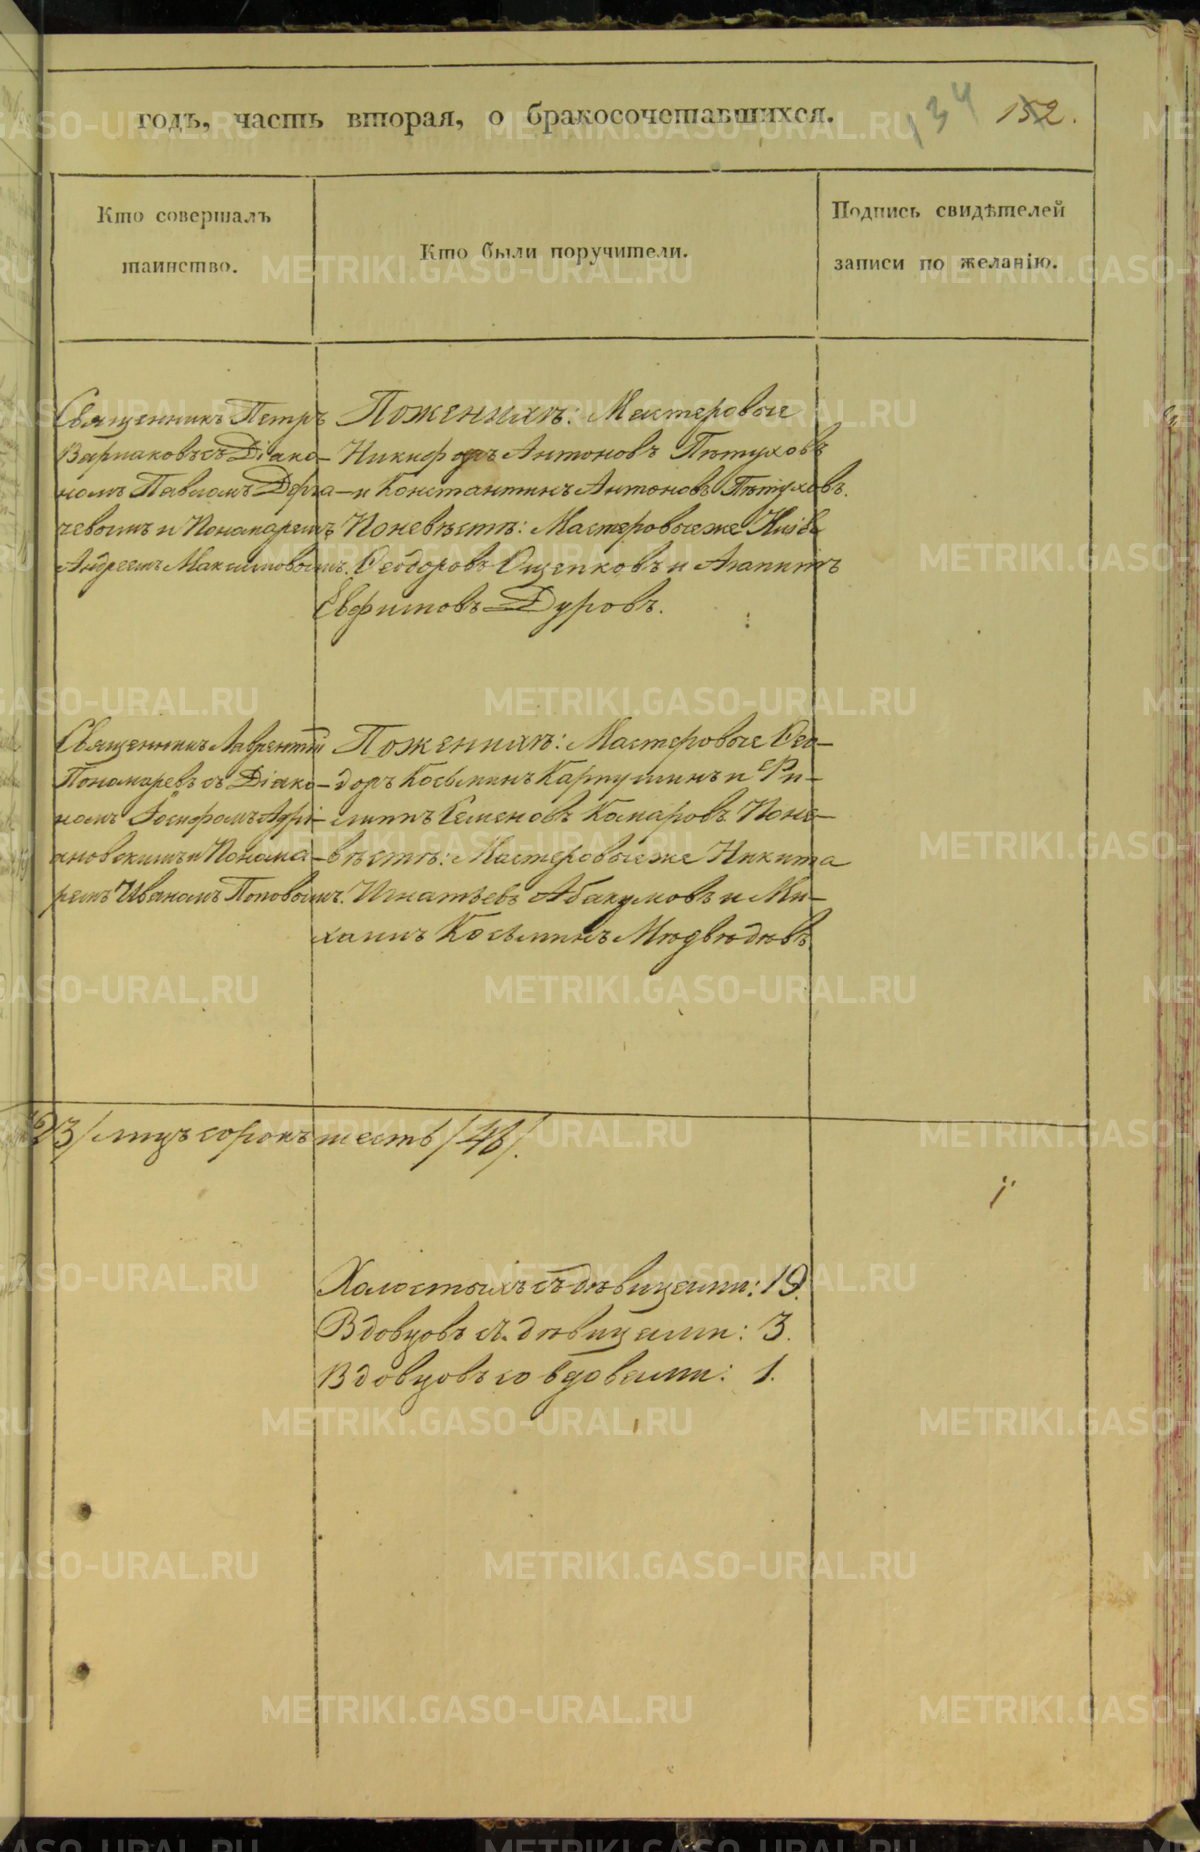 годъ, часть вторая, о бракосочетавшихся.
134 152.
Кто совершалъ
таинство.
Кто были поручители.
Подпись свидѣтелей
записи по желанію.
Священникъ Петръ
Варпаковъ съ Діако-
номъ Павломъ Дерга-
чевымъ и Пономаремъ
Андреемъ Максимовымъ.
По женихѣ: Мастеровые
Никифоръ Антоновъ Пѣтуховъ
и Константинъ Антоновъ Пѣтуховъ.
По невѣстѣ: Мастеровые же
Ѳеодоровъ Ощепковъ и Агапитъ
Евфимовъ Дуровъ.
Священникъ Лаврентій
Пономаревъ съ Діако-
номъ Іосифомъ Адрі-
ановскимъ и Понома-
ремъ Иваномъ Поповымъ.
По женихѣ: Мастеровые Ѳео-
доръ Косьминъ Карпушинъ и Фи-
липпъ Семеновъ Комаровъ По не-
вѣстѣ: Мастеровые же Никита
Игнатьевъ Абакумовъ и Ми-
хаилъ Косьминъ Мѣдвѣдевъ
23/ лицъ сорокъ шесть /46/.
Холостыхъ съ дѣвицами: 19.
Вдовцовъ съ дѣвицами: 3.
Вдовцовъ со вдовами: 1.
METRIKI.GASO-URAL.RU